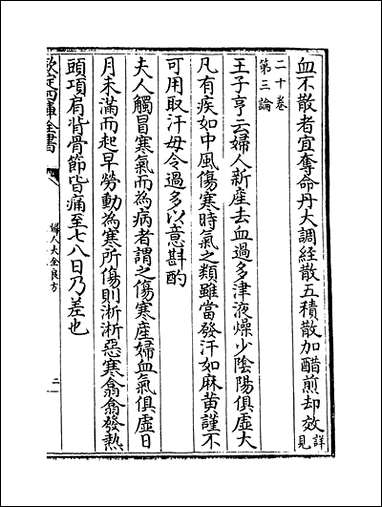 血不散者宜奪命丹大調經散五積散加醋煎却效詳見
二十卷
第三論
王子亨云婦人新産去血過多津液燥少陰陽俱虛大
凡有疾如中風傷寒時氣之類雖當發汗如麻黄謹不
可用取汗毋令過多以意斟酌
夫人觸冒寒氣而為病者謂之傷寒産婦血氣俱虛日
月未滿而起早勞動為寒所傷則淅淅惡寒翕翕發熱
頭項肩背骨節皆痛至七八日乃差也
欽定四庫全書
婦人大全良方
二